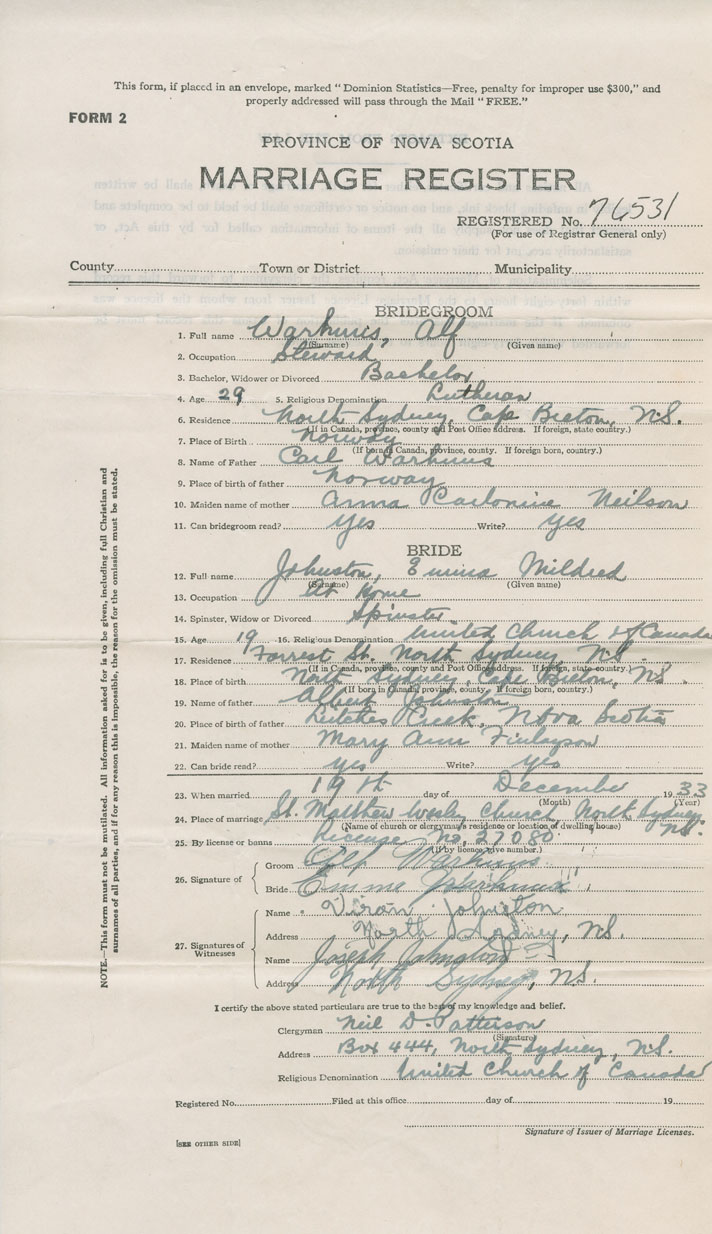 This form, if placed in an envelope, marked "Dominion Statistics—Free, penalty for improper use $300," and
properly addressed will pass through the Mail "FREE."
FORM 2
PROVINCE OF NOVA SCOTIA
MARRIAGE REGISTER
REGISTERED No. 76531
(For use of Registrar General only)
County Town or District Municipality
BRIDEGROOM
1. Full name Warhuus, Alf
(Surname) (Given name)
2. Occupation Steward
3. Bachelor, Widower or Divorced Bachelor
4. Age 29 5. Religious Denomination Lutheran
6. Residence North Sydney, Cape Breton, N.S.
(If in Canada, province, county and Post Office Address. If foreign, state country.)
7. Place of Birth Norway
(If born in Canada, province, county. If foreign born, country.)
8. Name of Father Carl Warhuus
9. Place of birth of father Norway
10. Maiden name of mother Anna Neilson
11. Can bridegroom read? Yes Write? Yes
BRIDE
12. Full name Johnston, Emma Mildred
(Surname) (Given name)
13. Occupation At Home
14. Spinster, Widow or Divorced Spinster
15. Age 19 16. Religious Denomination United Church of Canada
17. Residence Forrest St. North Sydney N.S.
(If in Canada, province, county and Post Office Address. If foreign, state country.)
18. Place of birth North Sydney, Cape Breton, N.S.
(If born in Canada, province, county. If foreign born, country.)
19. Name of father Albert Johnston
20. Place of birth of father Leitches Creek, Nova Scotia
21. Maiden name of mother Mary Ann Finlayson
22. Can bride read? yes Write? yes
23. When married 19th day of December 1933
(Month) (Year)
24. Place of marriage St. Matthew Wesley Church North Sydney, N.S.
(Name of church or clergyman's residence or location of dwelling house)
25. By license or banns License No. 27080
(If by licence give number.)
26. Signature of Groom Alf Warhuus
Bride Emma
27. Signatures of Witnesses
Name Johnston
Address North Sydney, N.S.
Name Joseph Johnston
Address North Sydney, N.S.
I certify the above stated particulars are true to the best of my knowledge and belief.
Clergyman Neil D. Patterson
(Signature)
Address Box 444, North Sydney, N.S.
Religious Denomination United Church of Canada
Registered No. Filed at this office day of 19
Signature of Issuer of Marriage Licenses.
[SEE OTHER SIDE]
NOTE.—This form must not be mutilated. All information asked for is to be given, including full Christian and
surnames of all parties, and if for any reason this is impossible, the reason for the omission must be stated.